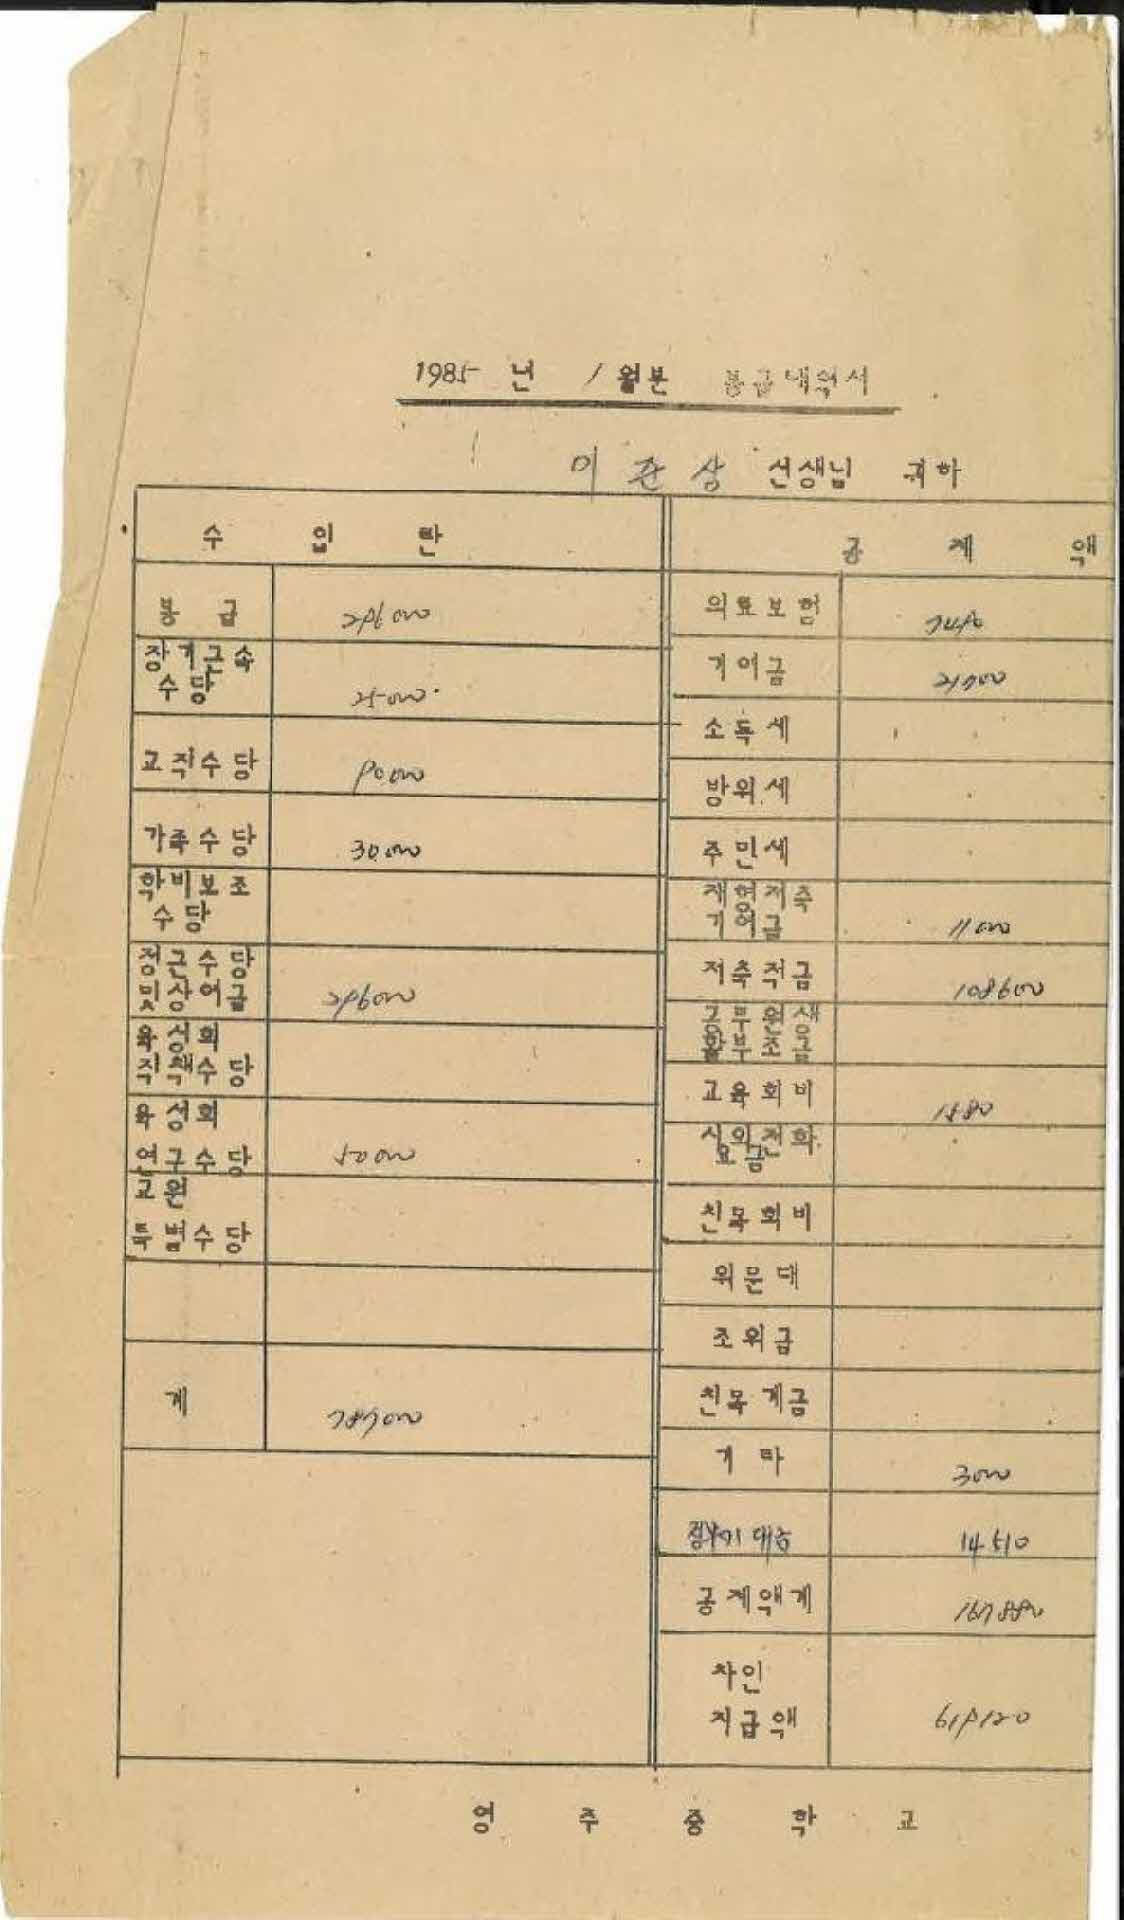 1985 년 1 월분 봉급내역서
이 관 상 선생님 귀하
수 입 란
봉 급 296000
장기근속
수당 25000
교직수당 90000
가족수당 30000
학비보조
수당
정근수당
및상여금 296000
육성회
직책수당
육성회
연구수당 50000
교원
특별수당
계 787000
공 제 액
의료보험 7490
기여금 21700
소득세
방위세
주민세
재형저축
기여금 11000
저축적금 108600
공무원생
활부조금
교육회비 1580
시외전화
요금
친목회비
위문대
조위금
친목계금
기타 3000
정부미 대금 14510
공제액계 167880
차인
지급액 619120
영 주 중 학 교